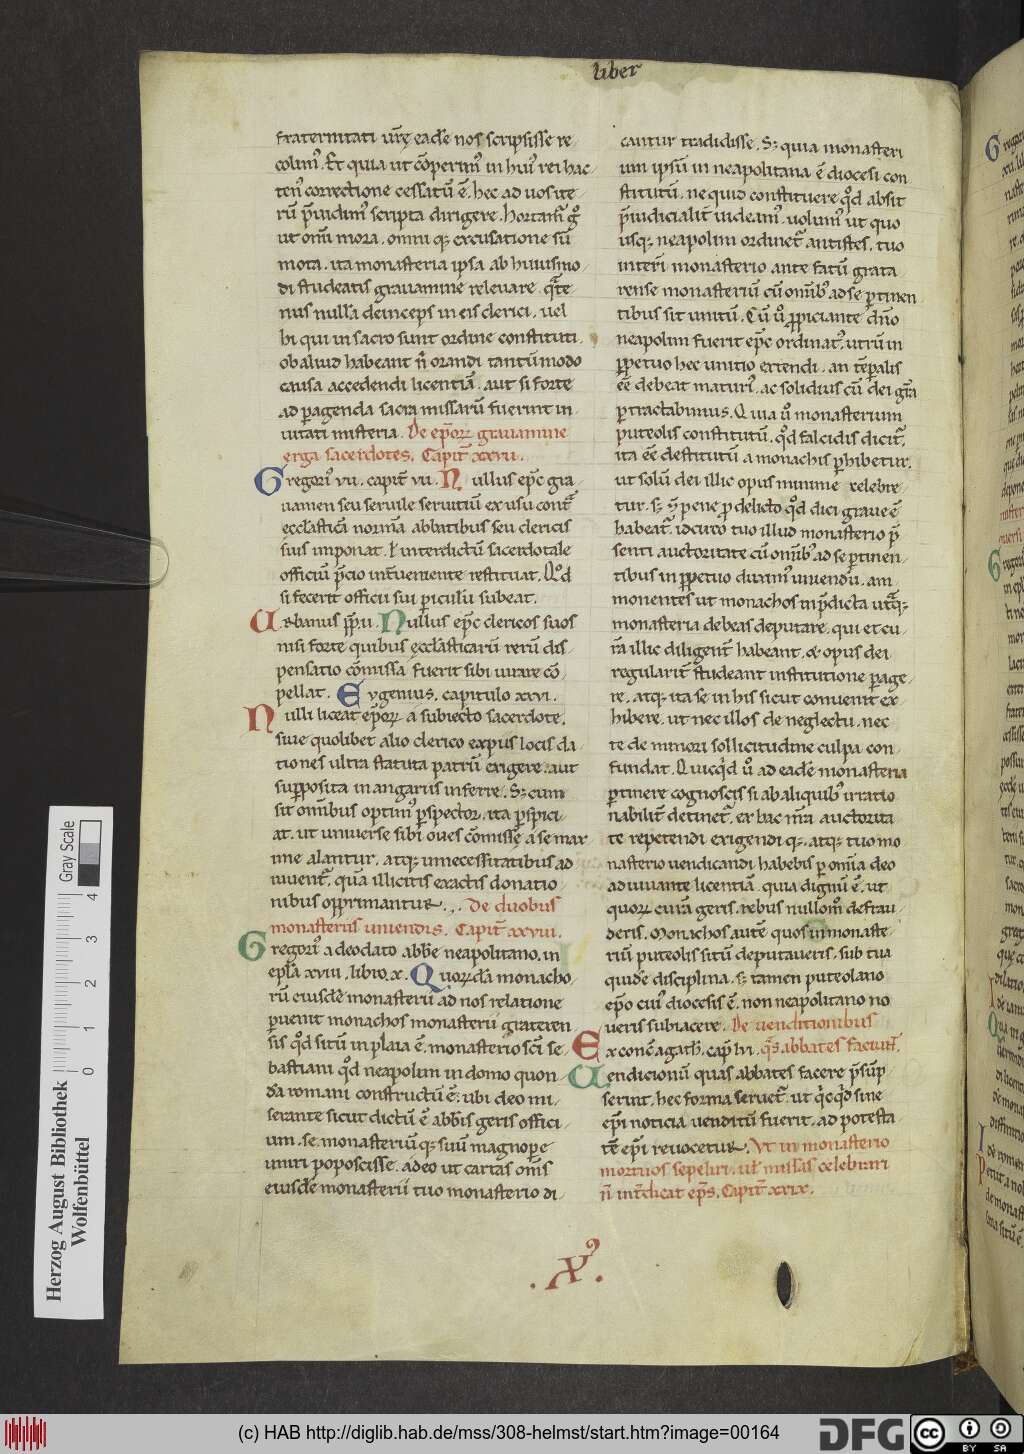 liber
fraternitati urę eadē nos scripsisse re
colim᷒. Et quia ut cōperim᷒ in hui᷒ rei hac
ten᷒ correctione cessatū ē. hec ad uos ite
rū p̄uidim᷒ scripta dirigere. hortam᷒ gͦ
ut omī mora. omni q; excusatione sū
mota. ita monasteria ipsa ab huiusmo
di studeatis grauamine releuare. qͣte
nus nulla deinceps in eis clerici. uel
hi qui in sacro sunt ordine constituti.
ob aliud habeant n̄ orandi tantūmodo
causa accedendi licentiā. aut si forte
ad p̱agenda sacra missarū fuerint in
uitati misteria. De ep̄orꝝ grauamine
erga sacerdotes. Capit̄ xxvii.
Gregori᷒ vii. capit̄ vii. Nullus ep̄c gra
uamen seu seruile seruitiū ex usu cont̄
ecclasticā normā abbatibus seu clericis
suis imponat. ł interdictū sacerdotale
officiū p̄cio int̄ueniente restituat. Qͦd
si fecerit officii sui p̱iculū subeat.
Urbanus pp̄ ii. Nullus ep̄c clericos suos
nisi forte quibus ęcclasticarū rerū dis
pensatio cōmissa fuerit sibi iurare cō
pellat. Eygenius. capitulo xxvi.
Nulli liceat ep̄orꝝ a subiecto sacerdote.
siue quolibet alio clerico ex pus locis da
tiones ultra statuta patrū exigere. aut
sup̱posita in angariis inferre. S; cum
sit om̄ibus optim᷒ p̱spector. ita p̱spici
at. ut uniuerse sibi oues cōmisse a se mar
ime alantur. atq; in necessitatibus ad
iuuent᷒. quā illicitis exactis donatio
nibus opprimantur. De duobus
monasteriis uniendis. Capit̄ xxviii.
Gregori᷒ a deodato abbe neapolitano. in
epl̄a xviii. libro. x. Quorꝝdā monacho
rū eiusdē monasterii ad nos relatione
p̱uenit monachos monasterii grateren
sis qͦd sitū in plaia ē. monasterio scī se
bastiani qͦd neapolim in domo quon
dā romani constructū ē. ubi deo mi
serante sicut dictū ē abbis geris offici
um. se. monasteriūq; suū magnope
uniri poposcisse. adeo ut cartas om̄s
eiusdē monasterii tuo monasterio di
cantur tradidisse. S; quia monasteri
um ipsū in neapolitana ē diocesi con
stitutū. ne quid constituere qͦd absit
p̄iudicialit̄ uideam᷒. uolum᷒ ut quo
usq; neapolim ordinet᷒ antistes. tuo
interī monasterio ante fatū grata
rense monasteriū cū om̄ib᷒ ad se p̱tinen
tibus sit unitū. Cū u̇ ꝓpiciante dn̄o
neapolim fuerit ep̄c ordinat᷒. utrū in
p̱petuo hec unitio extendi. an tēp̱alis
eē debeat maturi᷒. ac solidius cū dei gr̄a
p̱tractabimus. Quia u̇ monasterium
puteolis constitutū. qͦd falcidis dicit᷒.
ita eē destitutū a monachis p̱hibetur.
ut solū dei illic opus minime celebre
tur. s; pene pro delicto qͦd dici graue ē
habeat᷒. idcirco tuo illud monasterio p̄
senti auctoritate cū om̄ib᷒ ad se p̱tinen
tibus in p̱petuo duxim᷒ uniendū. am
monentes ut monachos in p̄dicta utͣq;
monasteria debeas deputare. qui et cu
rā illic diligent̄ habeant. & opus dei
regularit̄ studeant institutione p̱age
re. atq; ita se in his sicut conuenit ex
hibere. ut nec illos de neglectu. nec
te de minori sollicitudine culpa con
fundat. Quicqͥd u̇ ad eadē monasteria
p̱tinere cognoscis si ab aliquib᷒ irratio
nabilit̄ detinet᷒. ex hac nr̄a auctorita
te repetendi exigendi q;. atq; tuo mo
nasterio uendicandi habebis p̱ om̄ia deo
adiuuante licentiā. quia dignū ē. ut
quorꝝ curā geris. rebus nullom᷒ defrau
deris. Monachos autē quos in monaste
riū puteolis sitū deputaueris. sub tua
quidē disciplina. s; tamen puteolano
ep̄o cui᷒ diocesis ē. non neapolitano no
ueris subiacere. De uenditionibus
Ex conc̄ agath. cap̄ lvi. qͣs abbates faciunt.
Uendicionū quas abbates facere p̄sūp
serint. hec forma seruet᷒. ut qͥcqͥd sine
ep̄i noticia uenditū fuerit. ad potesta
tē ep̄i reuocetur. Ut in monasterio
mortuos sepeliri. ul̄ missas celebrari
n̄ int̄dicat ep̄s. Capit̄ xxix.
.X᷒.
Herzog August Bibliothek
Wolfenbüttel
0 1 2 3 4
Gray Scale
(c) HAB http://diglib.hab.de/mss/308-helmst/start.htm?image=00164
DFG
cc BY SA